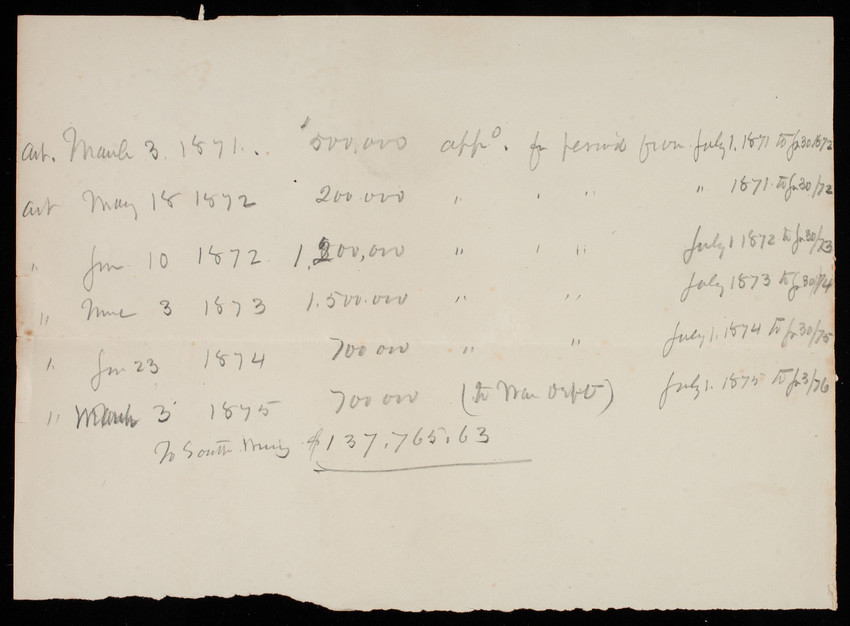 Act. March 3. 1871.. $500,000 app^o. for period from July 1. 1871 to Ju 30. 1872
Act May 18 1872 200.000 " " " " 1871 to Ju 30/72
" Jun 10 1872 1,200,000 " " " July 1 1872 to Ju 30/73
" 3 1873 1.500.000 " " July 1873 to Ju 30/74
" Jun 23 1874 700 000 " " July 1. 1874 to Ju 30/75
" March 3 1875 700 000 (to War Dept) July 1. 1875 to Ju 3/76
To South $137,765.63